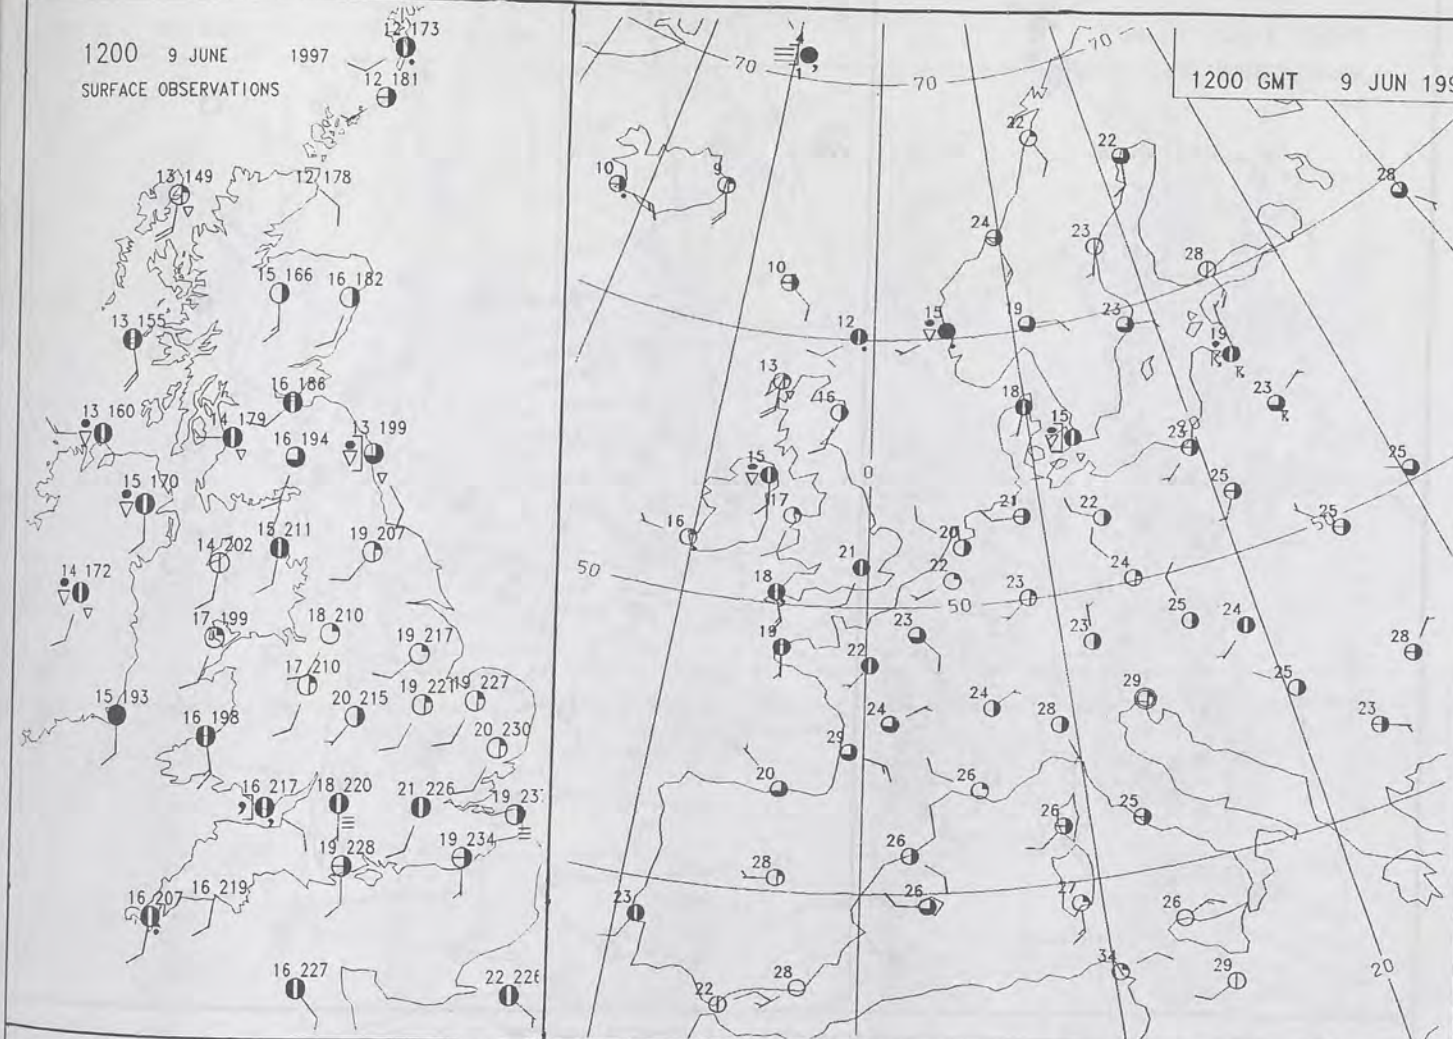 1200 9 JUNE 1997
SURFACE OBSERVATIONS
12 173
12 181
13 149
12 178
15 166
16 182
13 155
16 186
13 160
14 179
16 194
13 199
15 170
15 211
19 207
14 202
14 172
17 199
18 210
19 217
17 210
15 193
20 215
19 221
19 227
16 198
20 230
16 217
18 220
21 226
19 23
19 228
19 234
16 207
16 219
16 227
22 226
1200 GMT 9 JUN 199
4
1
70
70
70
22
22
28
10
9
24
23
28
10
12
15
19
23
19
13
16
18
15
23
20
23
15
0
17
25
25
16
21
22
25
50
20
50
21
22
24
18
23
50
23
25
24
19
22
23
28
25
29
24
24
28
23
29
20
26
26
25
28
26
26
27
23
26
34
28
29
22
20